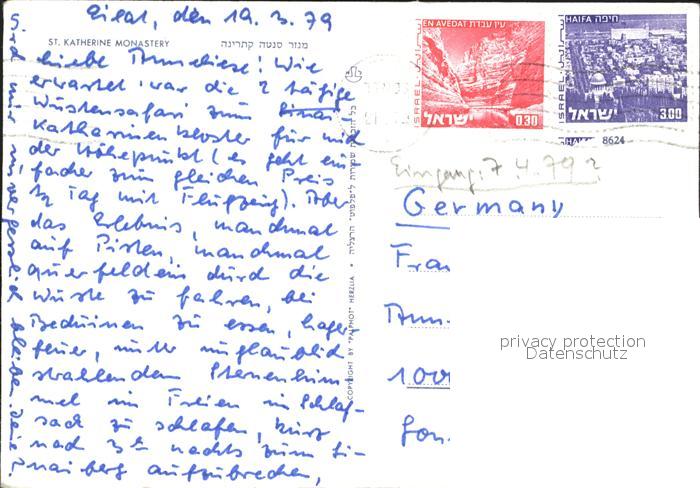 Eilat, den 19. 3. 79
ST. KATHERINE MONASTERY מנזר סנטה קתרינה
Liebe Anneliese! Wie
erwartet war die 2 tägige
Wüstensafari zum Sinai-
Katharinenkloster für mich
der Höhepunkt (es geht ein
facher zum gleichen Preis
½ Tag mit Flugzeug). Aber
das Erlebnis, manchmal
auf Pisten, manchmal
querfeldein durch die
Wüste zu fahren, bei
Beduinen zu essen, Lager
feuer, unter unglaublich
strahlendem Sternenhim
mel im Freien im Schlaf-
sack zu schlafen, kurz
nach 3h nachts zum Si-
naiberg aufzubrechen,
wird mir unvergesslich bleiben. Deine
COPYRIGHT BY "PALPHOT" HERZLIA •
EN AVEDAT עין עבדת
ISRAEL
ישראל
0.30
HAIFA חיפה
ISRAEL
ישראל
3.00
8624
Eingang: 7.4.79 ?
Germany
Frau
Ann
100
privacy protection
Datenschutz